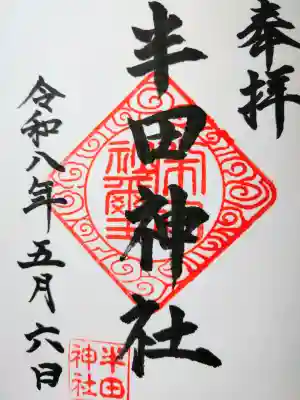 奉拝
半田神社
令和八年五月六日
半田
神社